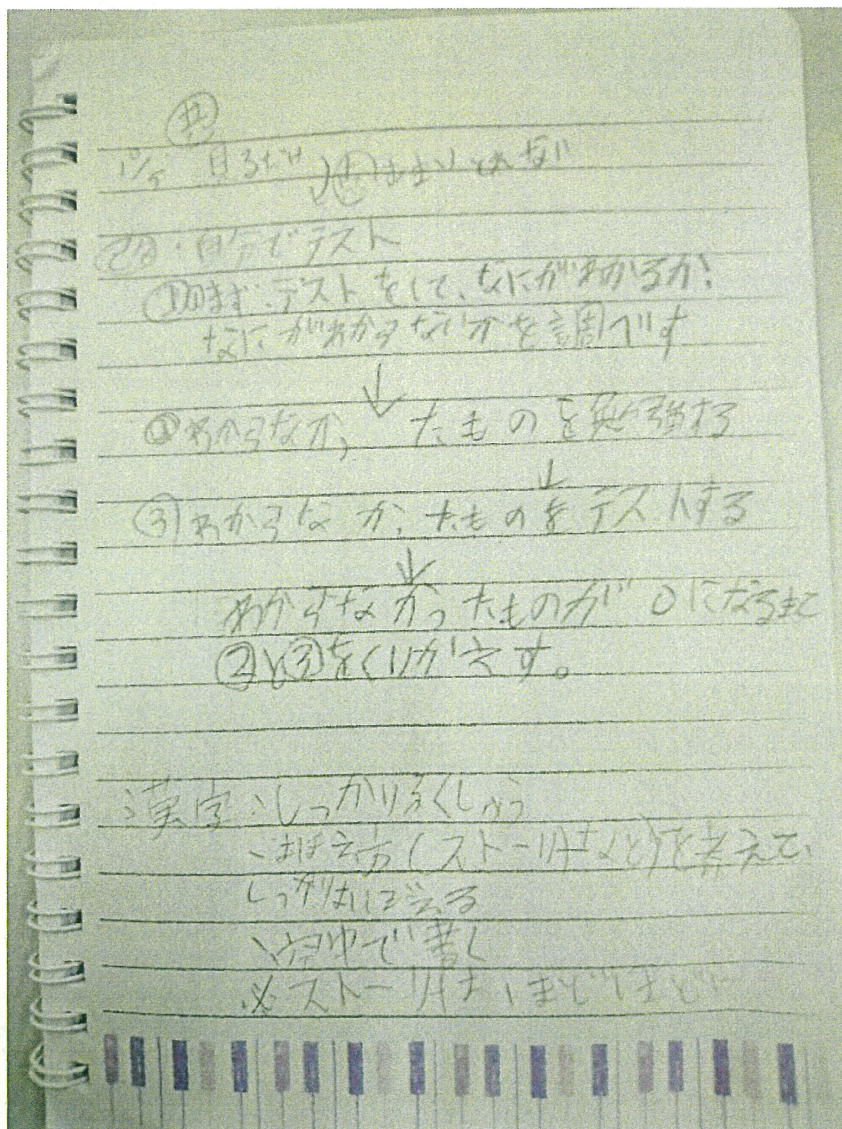 10/5 見るだけ
・自分でテスト
①まず、テストをして、なにがわかるか!
なにがわからないかを調べす
↓
②わからなかったものを勉強する
↓
③わからなかったものをテストする
↓
わからなかったものが0になるまで
②と③をくりがえす。
漢字:しっかりふくしゅう
おぼえ方(ストーリーなど)を考えて、
しっかりおぼえる
空中で書く
※ストーリーは、ほどほどに